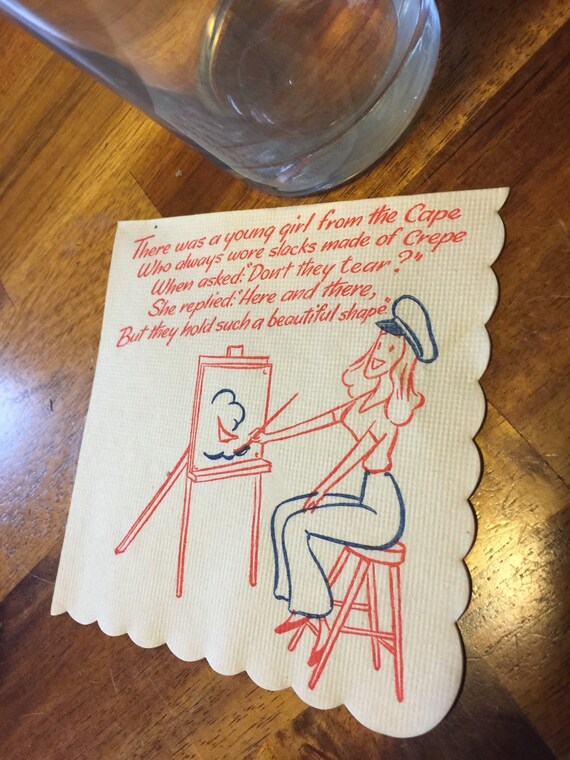 There was a young girl from the Cape
Who always wore slacks made of Crepe
When asked:"Don't they tear?"
She replied:"Here and there,
But they hold such a beautiful shape."